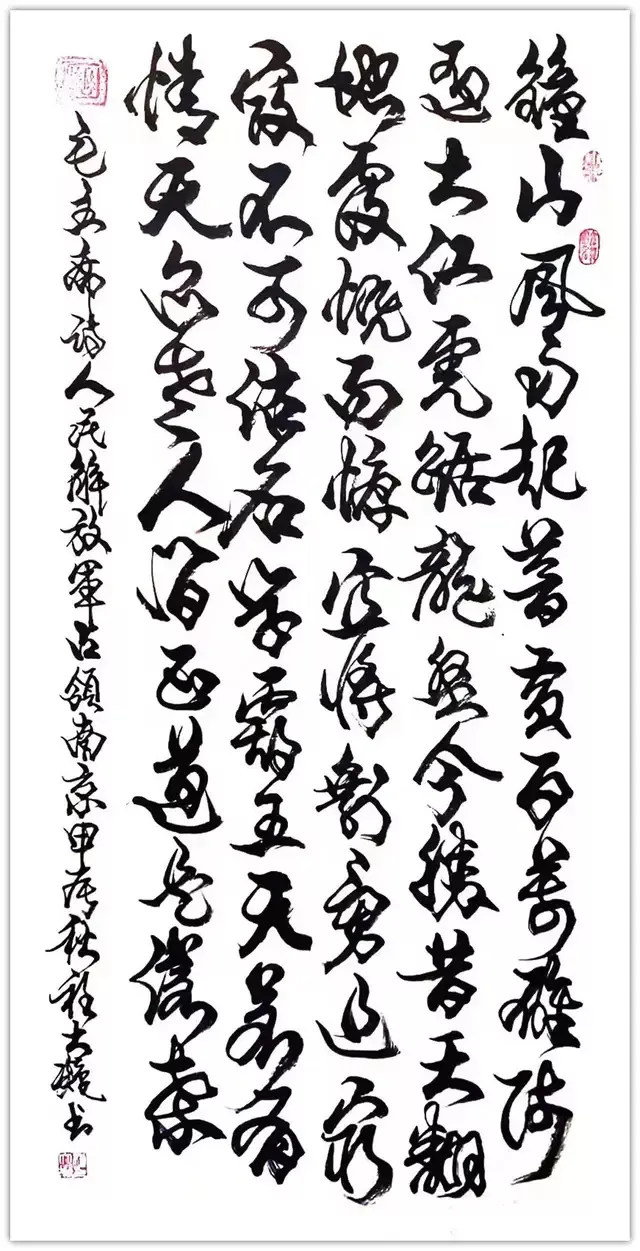 鐘山風雨起蒼黃百萬雄師
過大江虎踞龍盤今勝昔天翻
地覆慨而慷宜將剩勇追窮
寇不可沽名學霸王天若有
情天亦老人間正道是滄桑
毛主席詩人民解放軍占領南京甲辰秋程大书